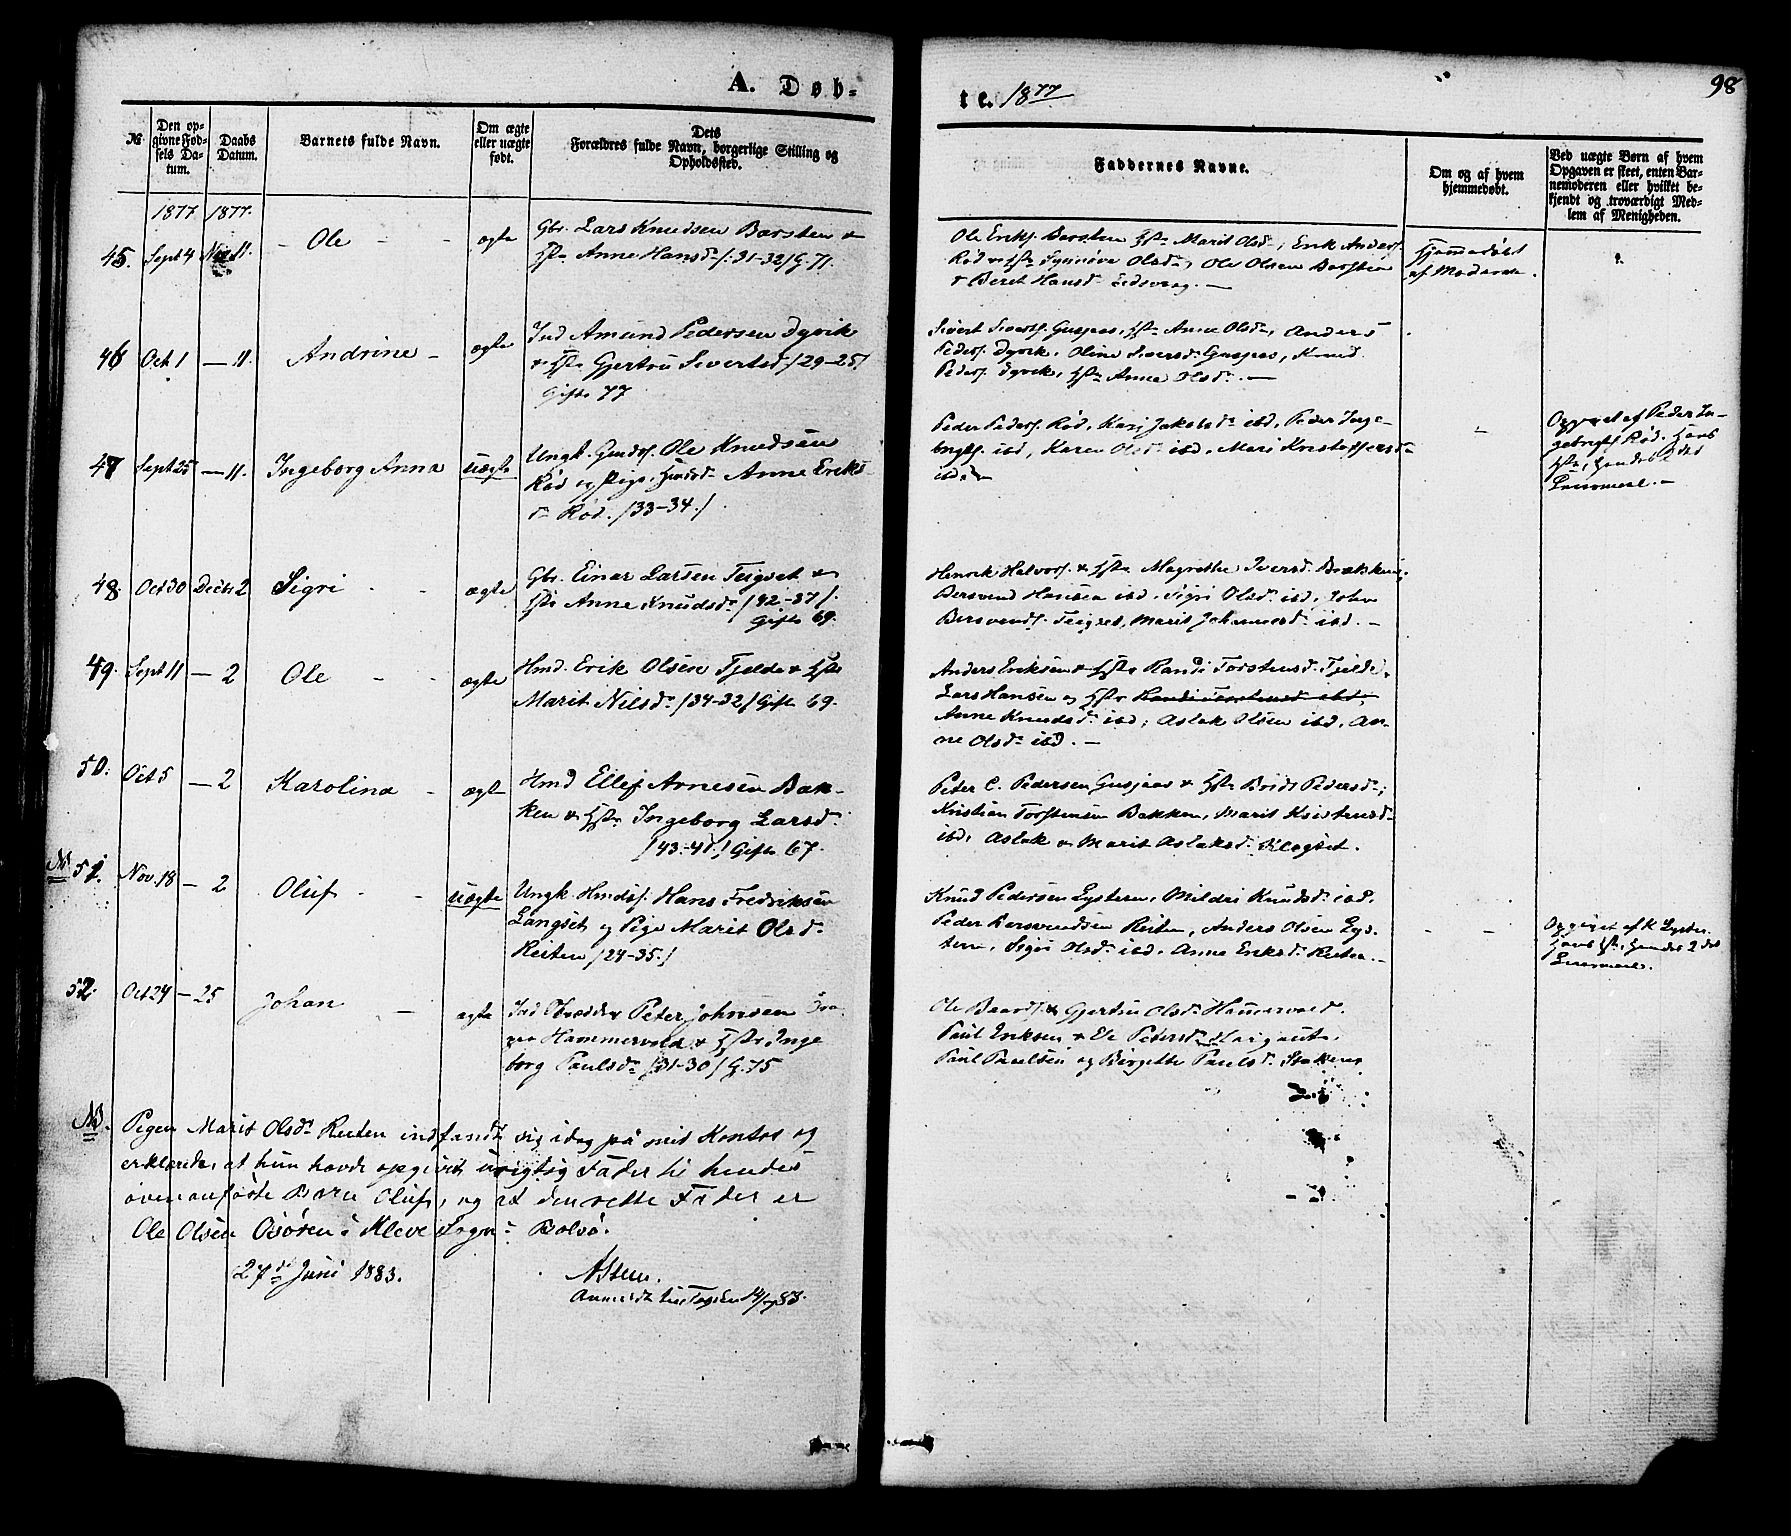 A. Døb-
te. 1877
98
№
Den opgivne Fødsels Datum.
Daabs Datum.
Barnets fulde Navn.
Om ægte eller uægte født.
Dets Forældres fulde Navn, borgerlige Stilling og Opholdssted.
Faddernes Navne.
Om og af hvem hjemmedøbt.
Ved uægte Børn af hvem Opgaven er skeet, enten Barnemoderen eller hvilket bekjendt og troværdigt Medlem af Menigheden.
1877 1877.
45. Sept 4 Nov 11. - Ole - - ægte
Gbr. Lars Knudsen Barsten &
Hstr Anne Hansdr /: 31-32/ G. 71.
Ole Eriks. Barsten Hstr Marit Olsdr, Erik Anders.
Rød & Hstr Synnøve Olsdr, Ole Olsen Barsten
& Beret Hansdr Eidsvaag. -
Hjemmedøbt
af Moderen.
46 Oct. 1 - 11. Andrine - ægte
Ind Amund Pedersen Dyrvik
& Hstr Gjertru Sivertsd /29-25/
Gifte 77
Sivert Siverts. Gusjaas, Hstr Anne Olsdr, Anders
Peders. Dyrvik, Oline Siversdr Gusjaas, Knud
Peders. Dyrvik, Hstr Anne Olsdr. -
47 Sept 25 - 11. Ingeborg Anna uægte
Ungk. Gmds. Ole Knudsen
Rød og Pige, Hmdsdr Anne Eriks
dr Rød. /33-34./
Peder Peders. Rød, Kari Jakobsdr ibd, Peder Inge-
brigts. ibd, Karen Olsdr ibd, Mari Kristoffersdr
ibd.
Opgivet af Peder In-
gebrigts Rød. Hans
1ste, Hendes 2det
Leiermaal. -
48. Oct 30 Decbr 2 Sigri - - ægte
Gbr. Einar Larsen Teigset &
Hstr Anne Knudsdr /42-37/.
Gifte 69.
Henrik Halvors. & Hstr Magrethe Iversd. Brækken,
Bersvend Hansen ibd, Sigri Olsdr ibd, John
Bersvends. Teigset, Marit Johannesdr ibd. -
49. Sept 11 - 2 Ole - - ægte
Hmd. Erik Olsen Fjelde & Hstr
Marit Nilsdr /34-32/ Gift 69.
Anders Eriksen & Hstr Randi Torstensdr Fjelde,
Lars Hansen og Hstr Randi Torstensd ibd,
Anne Knudsdr ibd; Aslak Olsen ibd, An-
ne Olsdr ibd. -
50. Oct 5 - 2 Karolina - ægte
Hmd Ellef Arnesen Bak-
ken & Hstr Ingeborg Larsdr
/43-41./ Gifte 67.
Peter C. Pedersen Gusjaas & Hstr Brit Pedersdr,
Kristian Torstensen Bakken, Marit Kristensdr
ibd, Aslak & Marit Aslaksdr
NB 51. Nov. 18 - 2 Oluf - - uægte
Ungk Hmds. Hans Fredriksen
Langset og Pige Marit Olsdr
Reiten /24-35./
Knud Pedersen Lysteren, Mildri Knudsdr ibd.
Peder Bersvendsen Reiten, Anders Olsen Lys-
teren, Sigri Olsdr ibd, Anne Eriksdr Reiten. -
Opgivet af K Lyster.
Hans 1ste, Hendes 2det
Leiermaal.
52. Oct 24 - 25 Johan - ægte
Ind Peter Johnsen
Hammervold & Hstr Inge
borg Paulsdr /31-30/ G. 75
Ole Baards. & Gjertru Olsdr Hammervold.
Paul Eriksen & Petersdr
Paul Paulsen og Birgitte Paulsdr
NB. Pigen Marit Olsdr Reiten indfandt sig idag på mit Kontor og
erklærede, at hun havde opgivet urigtig Fader til hendes
ovenanførte Barn Oluf, og at den rette Fader er
Ole Olsen Osøren i Kleve Sogn i Bolsø.
27de Juni 1883.